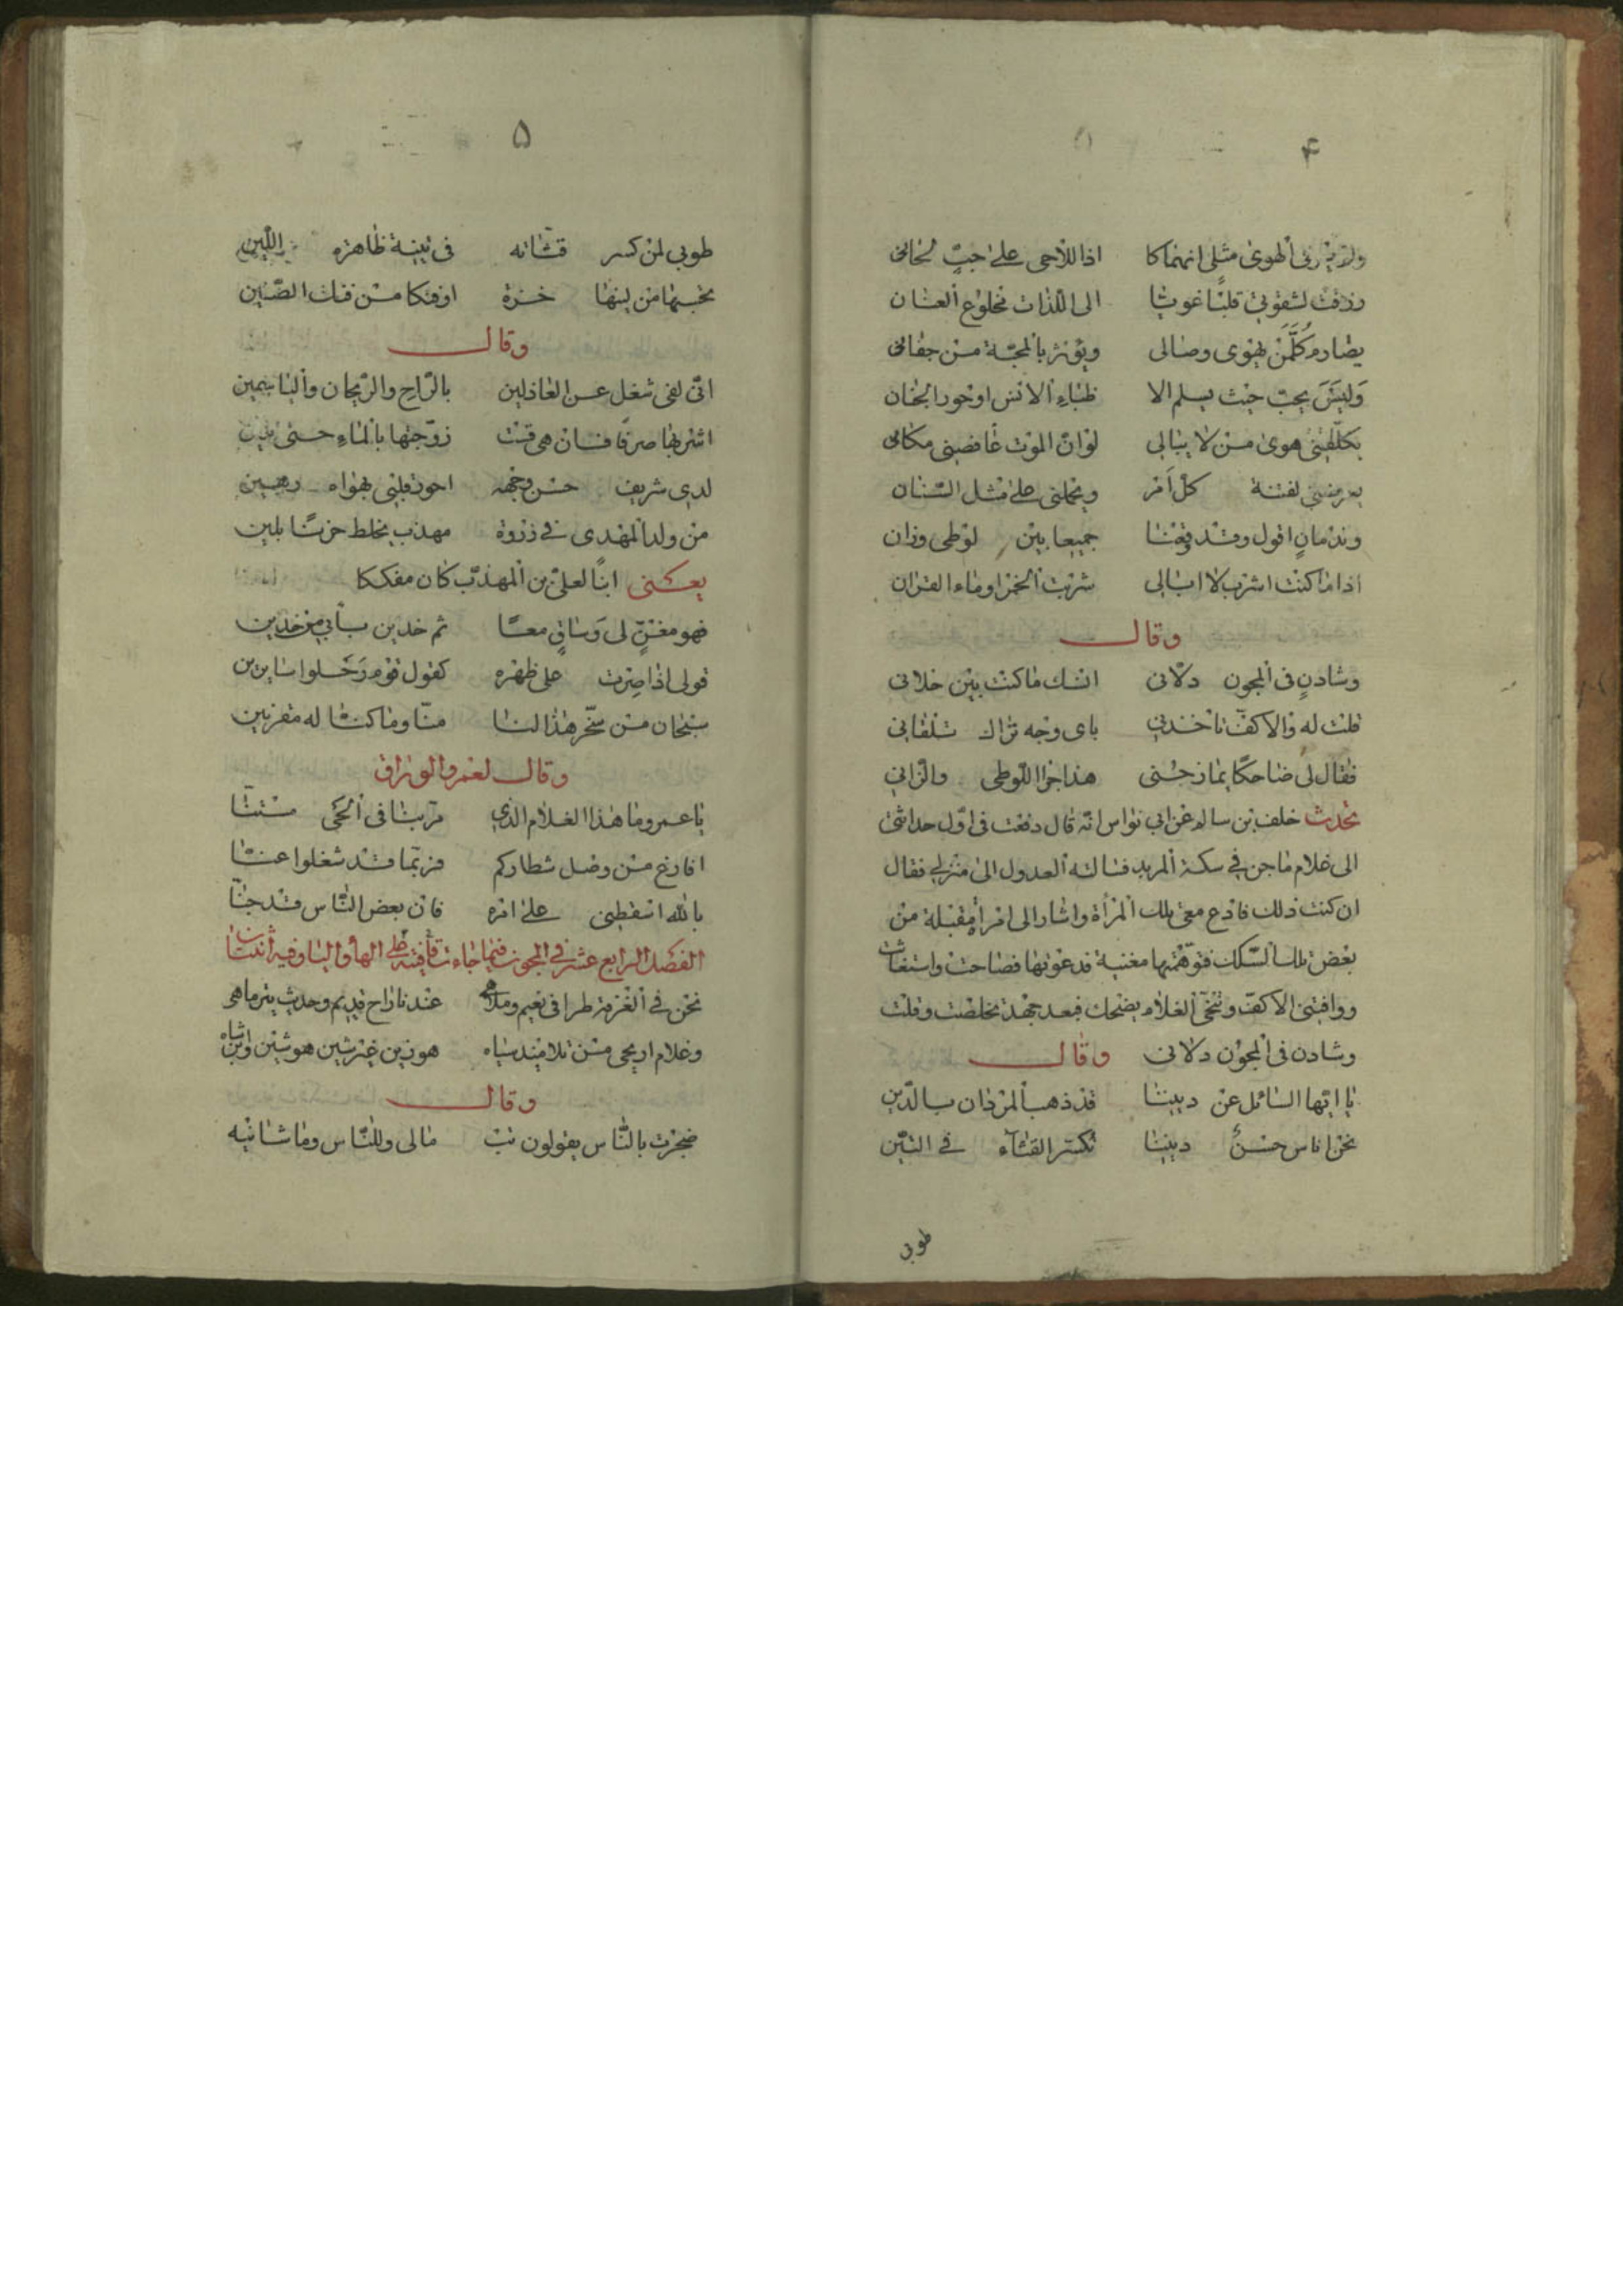 ۴
ولم ير في الهوى مثلى انهماكا اذا اللاحى على حبّ لحانى
رزقت لشقوتى قلبًا غويّا الى اللّذات مخلوع العنان
يصارم كُلَّمَنْ يهوى وصالى ويؤثر بالمحبّة من جفانى
وَليسَ يحبّ حيث يسلم الا ظباء الانس او حور الجنان
يكلّفنى هوى من لا يبالى لو انّ الموت غافصنى مكانى
يعرضنى لفتنة كلّ اَمر ويحملنى على مثل السّنان
وندمانٍ اقول وقد وقعنا جميعا بين لوطى وزان
اذا ما كنت اشرب لا ابالى شربت الخمر او ماء القران
وقال
وشادنٍ فى المجون دلّانى انسك ما كنت بين خلانى
قلت له والاكفّ تاخذنى باى وجه تراك تلقانى
فقال لى ضاحكًا يمازحنى هذا جزا اللّوطى والزّانى
تحدث خلف بن سالم عن ابى نواس انّه قال دفعت فى اوّل حداثتى
الى غلام ماجن فى سكة المربد فسالته العدول الى منزلى فقال
ان كنت ذلك فادع معى تلك المرأة واشار الى امرأة مقبلة من
بعض تلك السّكك فتوهّمتها مغنية فدعوتها فصاحت واستغاثت
ووافتنى الاكفّ وتنحّى الغلام يضحك فبعد جهد تخلصت وقلت
وشادن فى المجون دلانى وقال
يا ايّها السائل عن ديننا قد ذهب المردان بالدّين
نحن اناس حسنٌ ديننا نكسّر القثّآء فى التين
طوبى
۵
طوبى لمن كسر قثّاته فى تينة ظاهره اللّين
تخبها من لينها خزة او فنكا من فنك الصّين
وقال
انّى لفى شغل عن العاذلين بالرّاح والرّيحان والياسمين
اشربها صرفًا فان هى قست زوّجتها بالماء حتى تلين
لدى شريف حسن وجهه احور قلبى بهواه رهين
من ولد المهدى فى ذروة مهذب يخلط حزنًا بلين
يعنى ابنًا لعلىّ بن المهذّب كان مفككا
فهو مغنٍّ لى وَساقٍ معًا ثم خدين بأبى من خدين
قولى اذا صرت على ظهره كقول قوم رَحَلوا سايرين
سبحان من سخّر هذا لنا منّا وما كنّا له مقرنين
وقال لعمرو الوراق
يا عمرو ما هذا الغلام الذى مرّ بنا فى الحىّ مستنّا
افارغ من وصل شطاركم فربّما قد شغلوا عنّا
بالله اسقطنى على امره فان بعض النّاس قد جنّا
الفصل الرابع عشر فى المجون فيما جاءت قافيته على الهاء والياء وفيه
نحن فى الغرفة طرا فى نعيم وملاهى عندنا راح قديم وحديث
وغلام اريحى من تلاميذ سياه
وقال
ضجرت بالنّاس يقولون تب مالى وللنّاس وما شانيه